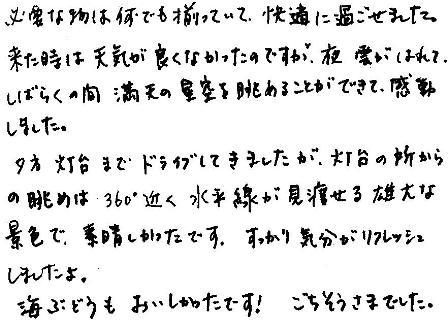 必要な物は何でも揃っていて、快適に過ごせました。
来た時は天気が良くなかったのですが、夜 雲がはれて、
しばらくの間 満天の星空を眺めることができて、感動
しました。
夕方 灯台までドライブしてきましたが、灯台の所から
の眺めは 360°近く 水平線が見渡せる 雄大な
景色で、素晴しかったです。すっかり気分がリフレッシュ
しましたよ。
海ぶどうも おいしかったです! ごちそうさまでした。